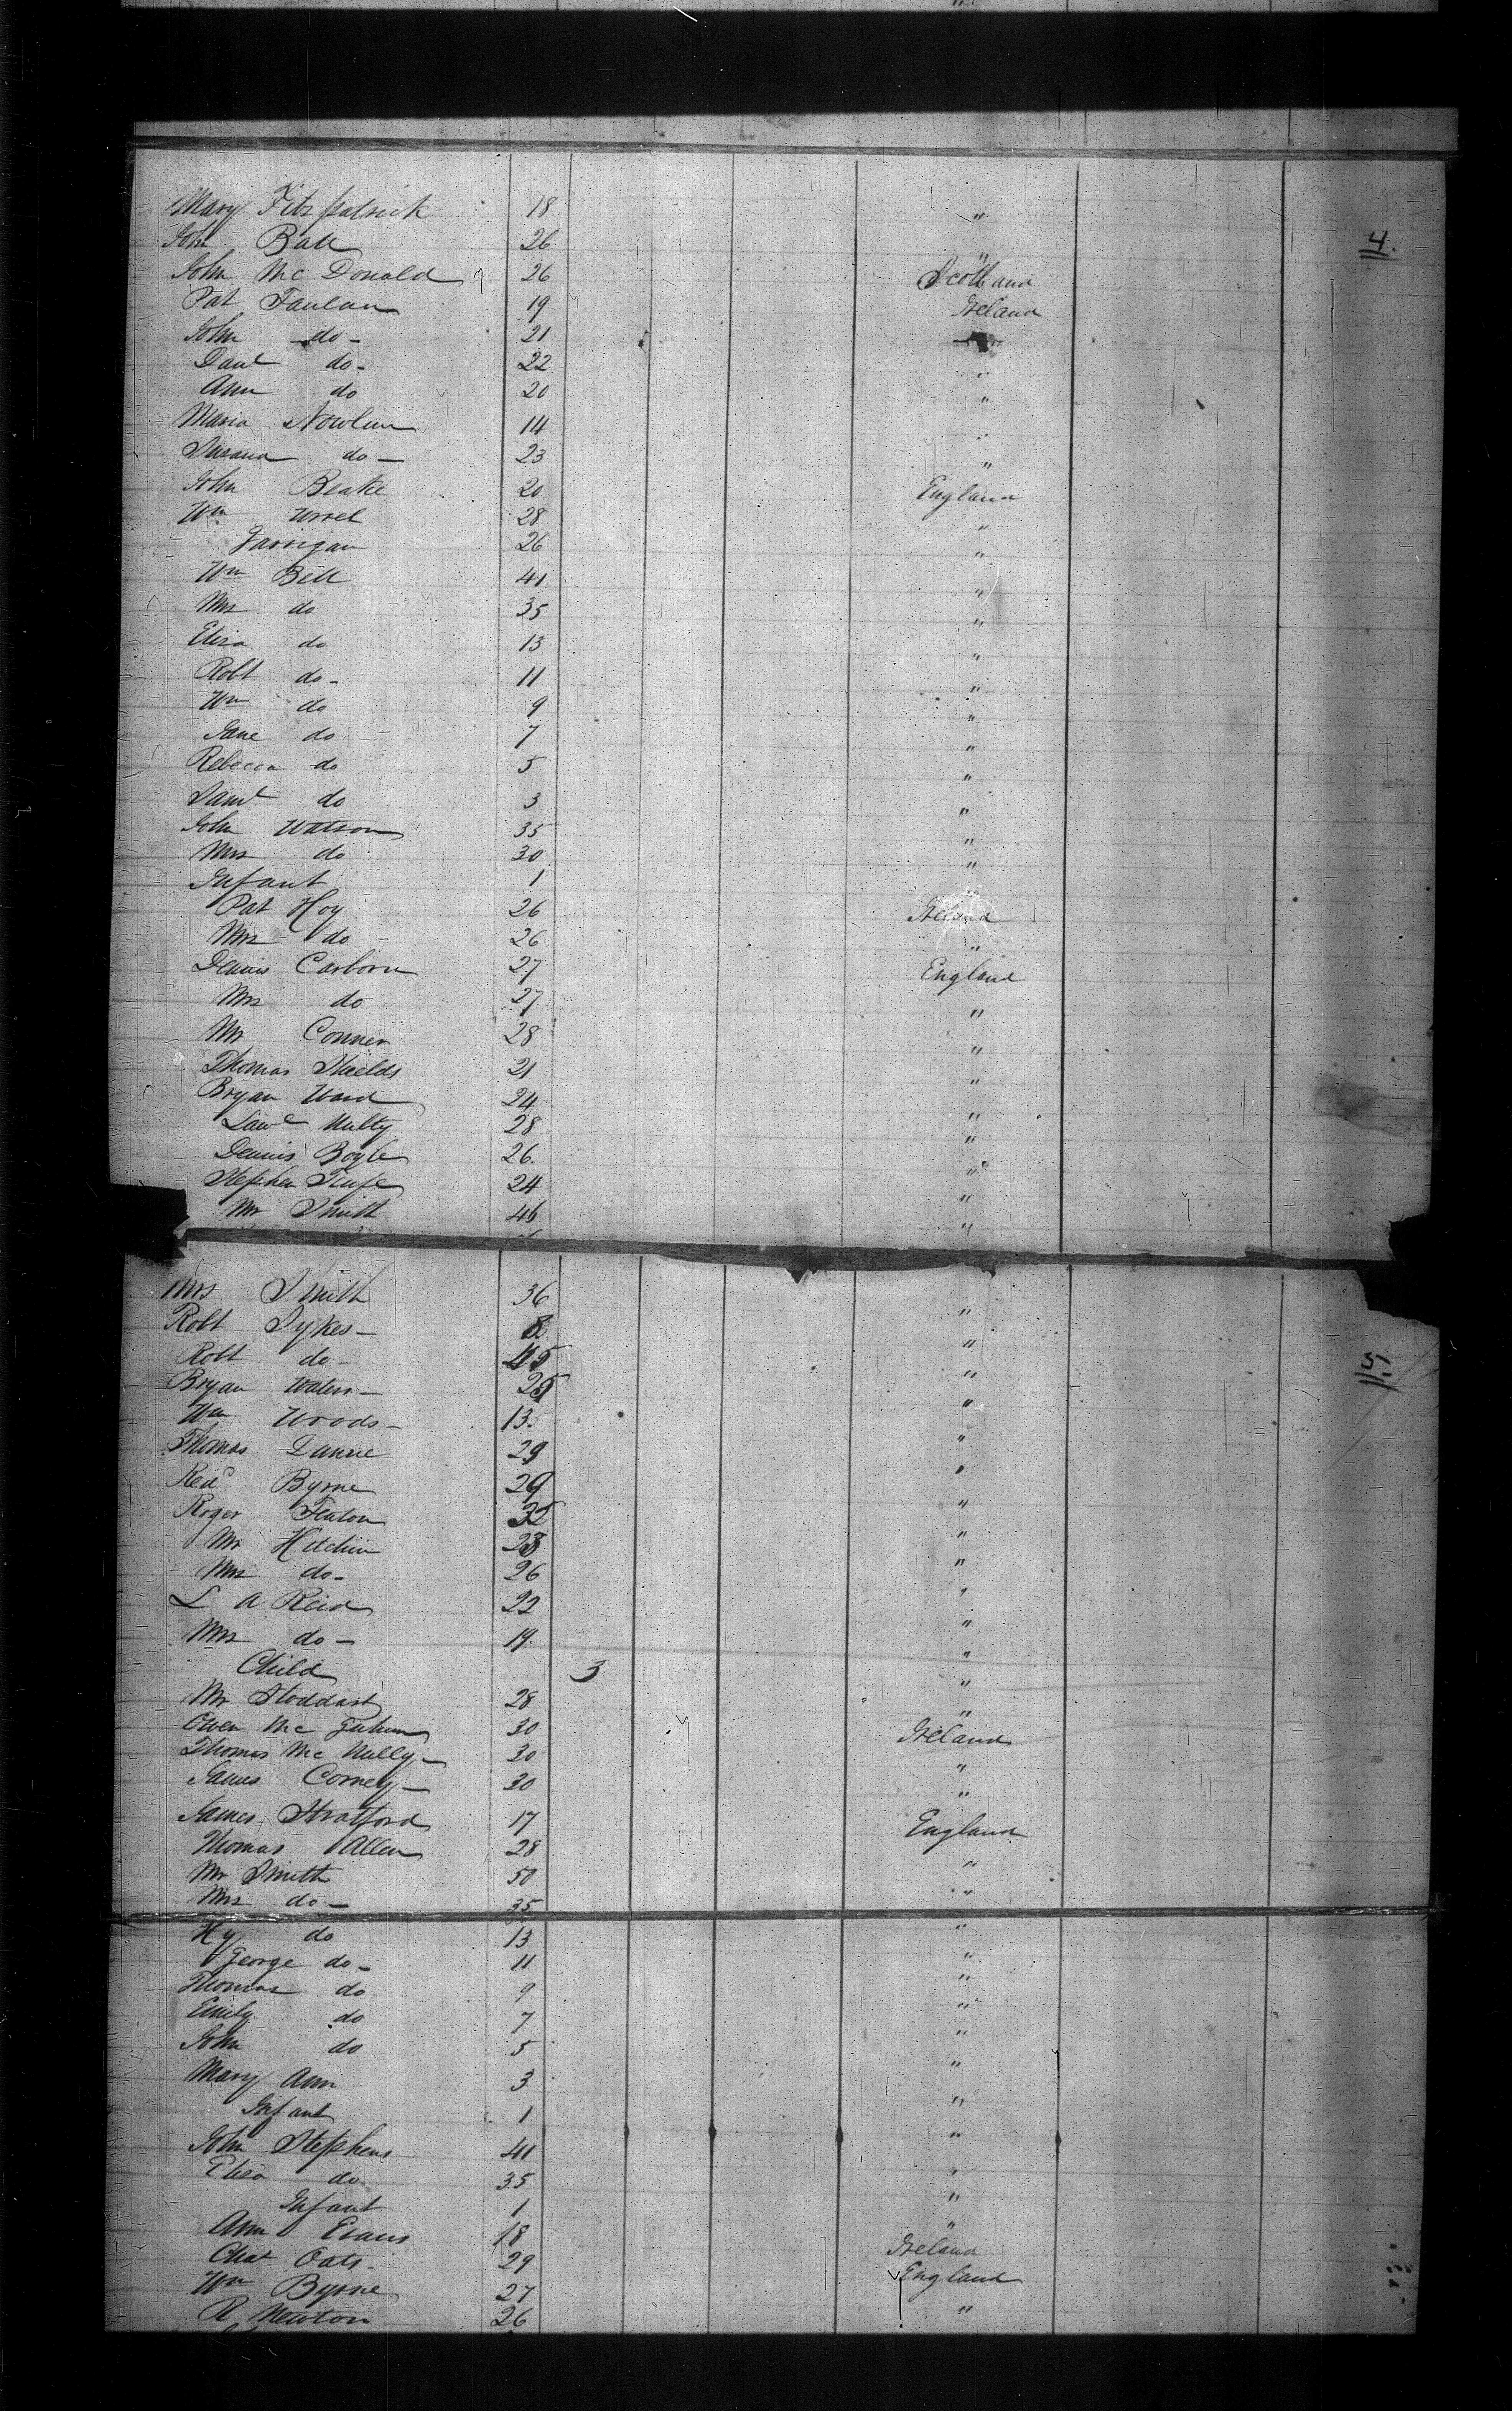 Mary Fitzpatrick 18 "
4.
John Ball 26 "
John Mc Donald 26 Scotland
Pat 19 Ireland
John do - 21 "
Danl do - 22 "
Ann do 20 "
Maria Nowlin 14 "
Susana do - 23 "
John Beake 20 England
Wm Urrel 28 "
Garrigan 26 "
Wm Bell 41 "
Mrs do 35 "
Eliza do 13 "
Robt do - 11 "
Wm do 9 "
Jane do 7 "
Rebecca do 5 "
Saml do 3 "
John Watson 35 "
Mrs do 30 "
Infant 1 "
Pat Hoy 26 Ireland
Mrs do - 26 "
Dennis Carborn 27 England
Mrs do 27 "
Mr Conner 28 "
Thomas Shields 21 "
Bryan Ward 24 "
Lawe Nulty 28 "
Dennis Boyle 26. "
Stephen 24 "
Mr Smith 46 "
Mrs Smith 36 "
Robt Sykes - 8 "
5.
Robt do - 45 "
Bryan Waters - 25 "
Wm Woods - 13 "
Thomas Dunne 29 "
Byrne 29 "
Roger Fenton 32 "
Mr Hitchin 23 "
Mrs do - 26 "
L A Reid 22 "
Mrs do - 19 "
Child 3 "
Mr Stoddart 28 "
Owen Mc 30 Ireland
Thomas Mc Nully - 30 "
James Corney - 30 "
James Stratford 17 England
Thomas Allen 28 "
Mr Smith 50 "
Mrs do - 35 "
Hy do 13 "
George do - 11 "
Thomas do 9 "
Emily do 7 "
John do 5 "
Mary Ann 3 "
Infant 1 "
John Stephens 41 "
Eliza do 35 "
Infant 1 "
Ann Evans 18 Ireland
Chas Oats. 29 England
Wm Byrne 27 "
R. Newton 26